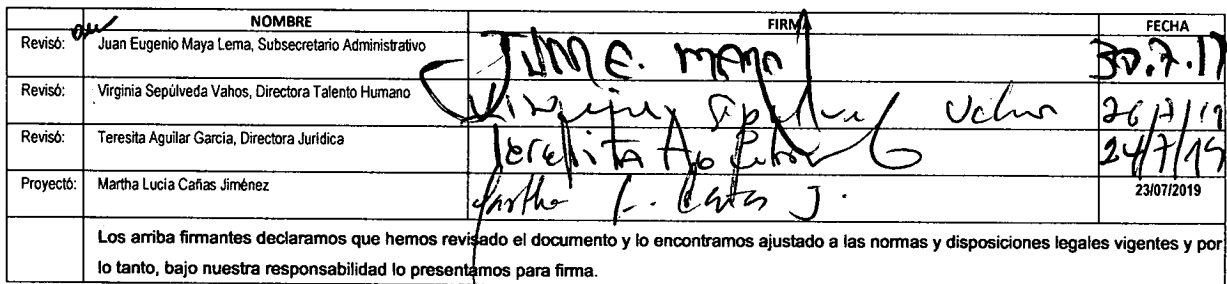 NOMBRE FIRMA FECHA
Revisó: Juan Eugenio Maya Lema, Subsecretario Administrativo 30.7.19
Revisó: Virginia Sepúlveda Vahos, Directora Talento Humano Virginia Sepulveda Vahos 26/7/19
Revisó: Teresita Aguilar Garcia, Directora Jurídica Teresita Aguilar 24/7/19
Proyectó: Martha Lucia Cañas Jiménez Martha L. Cañas J. 23/07/2019
Los arriba firmantes declaramos que hemos revisado el documento y lo encontramos ajustado a las normas y disposiciones legales vigentes y por
lo tanto, bajo nuestra responsabilidad lo presentamos para firma.